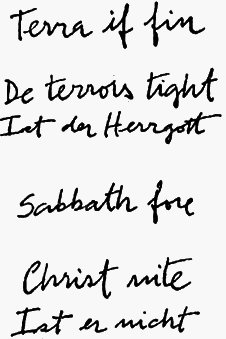 Terra if fin
De terrois tight
Ist der Herrgott
Sabbath fore
Christ mite
Ist er nicht